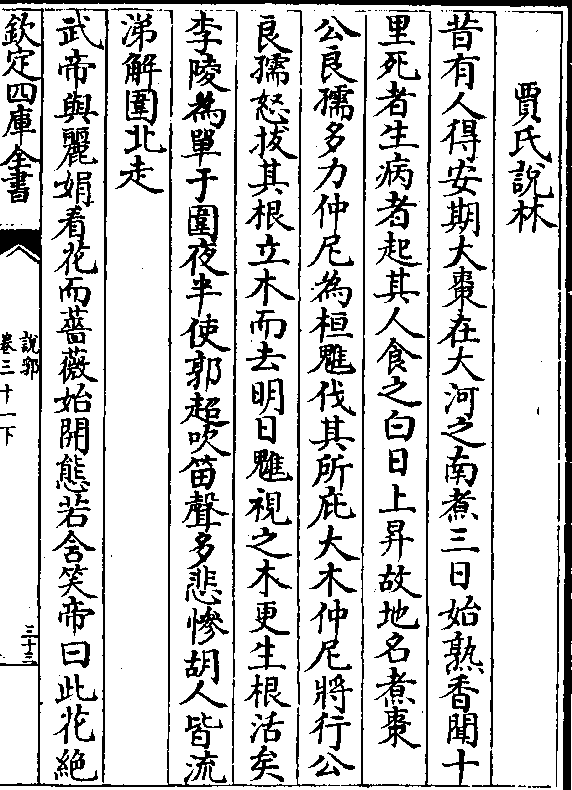 賈氏說林
昔有人得安期大棗在大河之南煮三日始熟香聞十
里死者生病者起其人食之白日上昇故地名煮棗
公良孺多力仲尼為桓魋伐其所庇大木仲尼將行公
良孺怒拔其根立木而去明日魋視之木更生根活矣
李陵為單于圍夜半使郭超吹笛聲多悲慘胡人皆流
涕解圍北走
武帝與麗娟看花而薔薇始開態若含笑帝曰此花絕
欽定四庫全書
說郛
卷三十一下
三十三